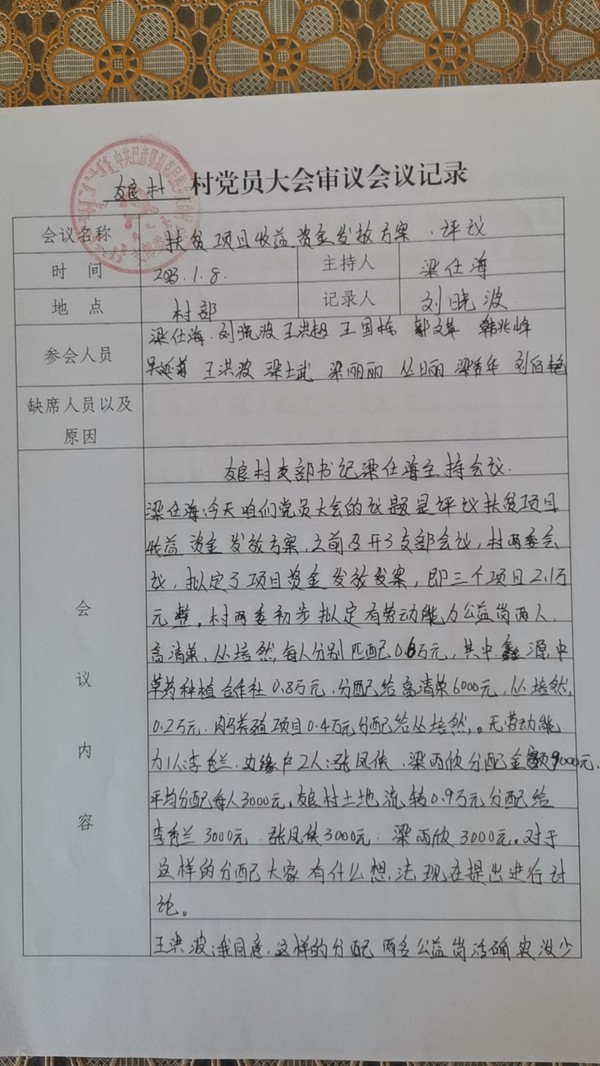 友良村 村党员大会审议会议记录
会议名称 扶贫项目收益资金发放方案、评议
时 间 2023.1.8. 主持人 梁仕海
地 点 村部 记录人 刘晓波
梁仕海、刘晓波 王洪超 王国栋 郭文军 韩兆峰
参会人员
王洪波 梁士武 梁丽丽 丛日丽
缺席人员以及
原因
友良村支部书记梁仕海主持会议.
梁仕海:今天咱们党员大会的议题是评议扶贫项目
收益资金发放方案,之前召开了支部会议,村两委会
议,拟定了项目资金发放方案,即三个项目2.1万
会 元整。村两委初步拟定有劳动能力公益岗两人.
高清菊、丛培然,每人分别匹配0.6万元,其中鑫源中
议 草药种植合作社0.8万元,分配给高清菊6000元,丛培然
0.2万元,养殖项目0.4万元分配给丛培然。无劳动能
内 力1人李秀兰.边缘户2人:张凤侠、梁雨欣分配金额9000元,
平均分配每人3000元,友良村土地流转0.9万元分配给
容 李秀兰3000元.张凤侠3000元.梁雨欣3000元。对于
这样的分配大家有什么想法现在提出进行讨
论。
王洪波:我同意,这样的分配 两名公益岗活确实没少